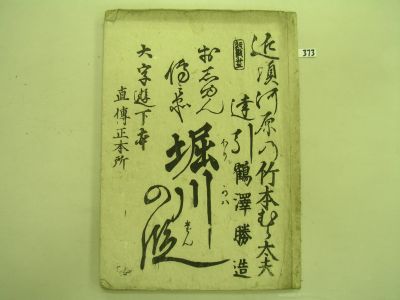 近頃河原の
竹本むら太夫
達引
鶴澤勝造
おしゅん
傳兵衛
堀川の段
ほりかハ
だん
大字遊下本
直傳正本所
373